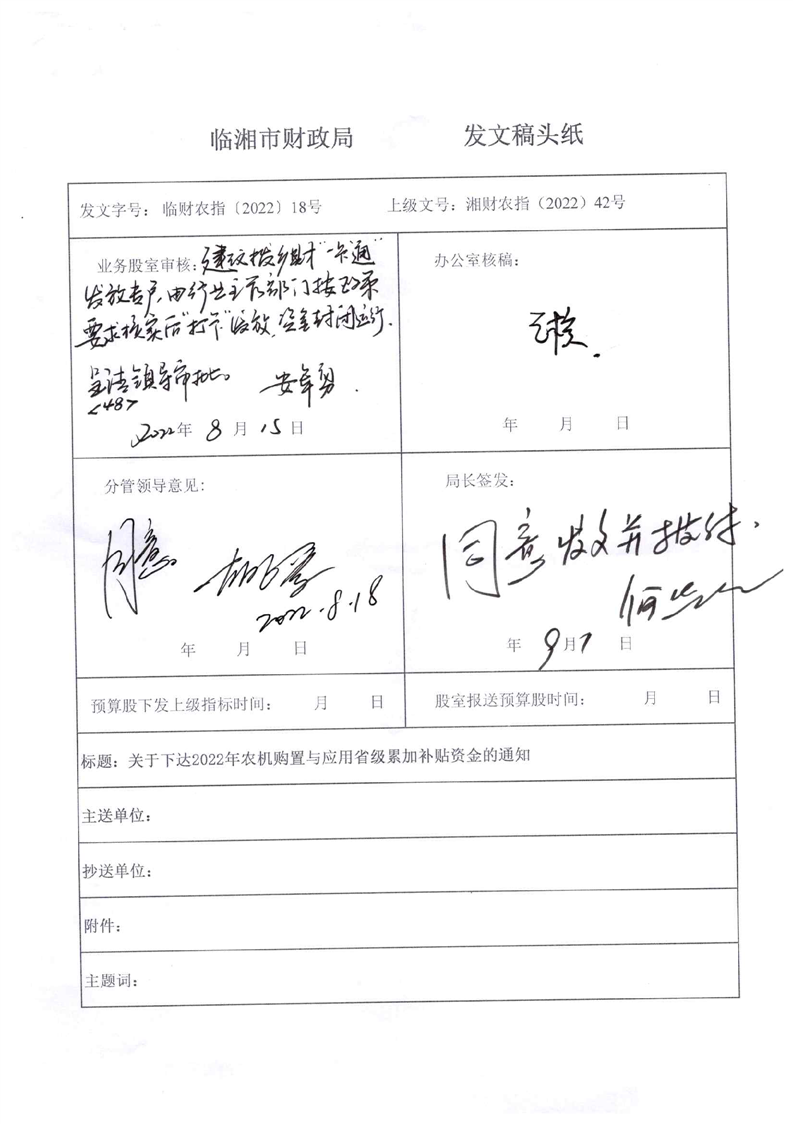 临湘市财政局 发文稿头纸
发文字号： 临财农指〔2022〕18号 上级文号：湘财农指（2022）42号
业务股室审核：建议拨乡财"一卡通"
发放专户，由行业主管部门按政策
要求核实后"打卡"发放，资金封闭运行．
呈请领导审批。
<48>
2022年 8 月 15 日
办公室核稿：
已核．
年 月 日
分管领导意见：
同意
2022.8.18
年 月 日
局长签发：
同意发文并拨付．
年 9月7 日
预算股下发上级指标时间： 月 日
股室报送预算股时间： 月 日
标题：关于下达2022年农机购置与应用省级累加补贴资金的通知
主送单位：
抄送单位：
附件：
主题词：